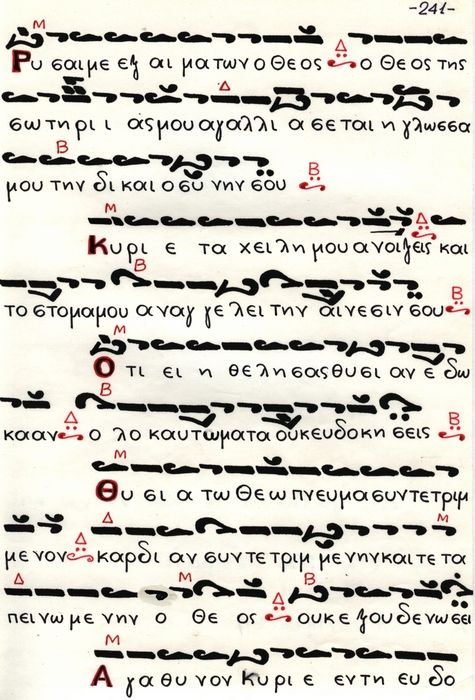 -241-
Μ Δ
Ρυ σαι με εξ αι μα των ο Θεος ο Θεος της
Δ
σω τη ρι ι ας μου αγαλλι α σε ται η γλωσσα
Β Β
μου την δι και ο συ νην σου
Μ Δ
Κυρι ε τα χει λη μου α νοι ξεις και
Β Β
το στομα μου α ναγ γε λει την αι νε σιν σου
Μ
Ο τι ει η θε λη σας θυ σι αν ε δω
Β Δ Β
κα αν ο λο καυτωματα ουκ ευδοκη σεις
Μ
Θυ σι α τω Θεω πνευμα συντετριμ
Δ Δ Μ
με νον καρδι αν συν τετριμ με νην και τε τα
Δ Μ Δ Β
πει νω με νην ο Θε ος ουκ ε ξου δε νω σει
Μ
Α γα θυ νον Κυ ρι ε εν τη ευ δο